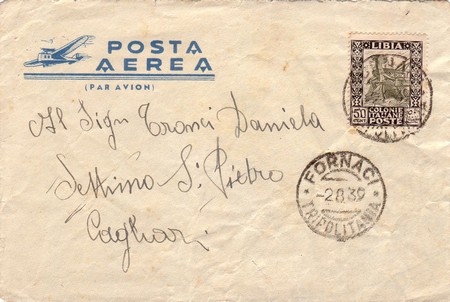 POSTA
AEREA
(PAR AVION)
LIBIA
50
COLONIE
ITALIANE
POSTE
Al Sign Tronci Daniela
Settimo S. Pietro
Cagliari
FORNACI
-2 8 39
TRIPOLITANIA